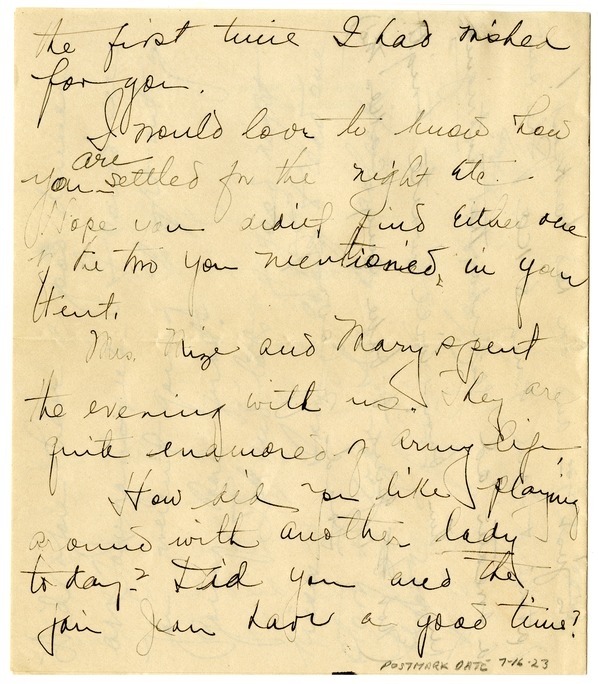 the first time I had wished
for you.
I would love to know how
are
you settled for the night etc.
Hope you didn't find either one
of the two you mentioned, in your
tent.
Mrs. Mize and Mary spent
the evening with us. They are
quite enamored of army life,
How did you like playing
around with another lady
to-day? Did you and the
Jean have a good time?
POSTMARK DATE 7-16-23